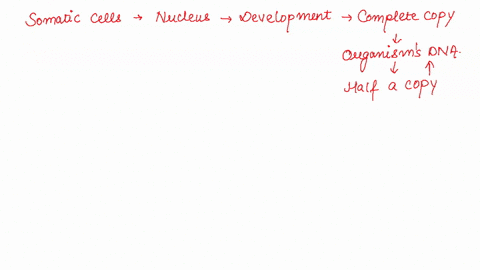 Somatic cells → Nucleus → Development → Complete copy
↓
Organism's DNA.
↓ ↑
Half a copy